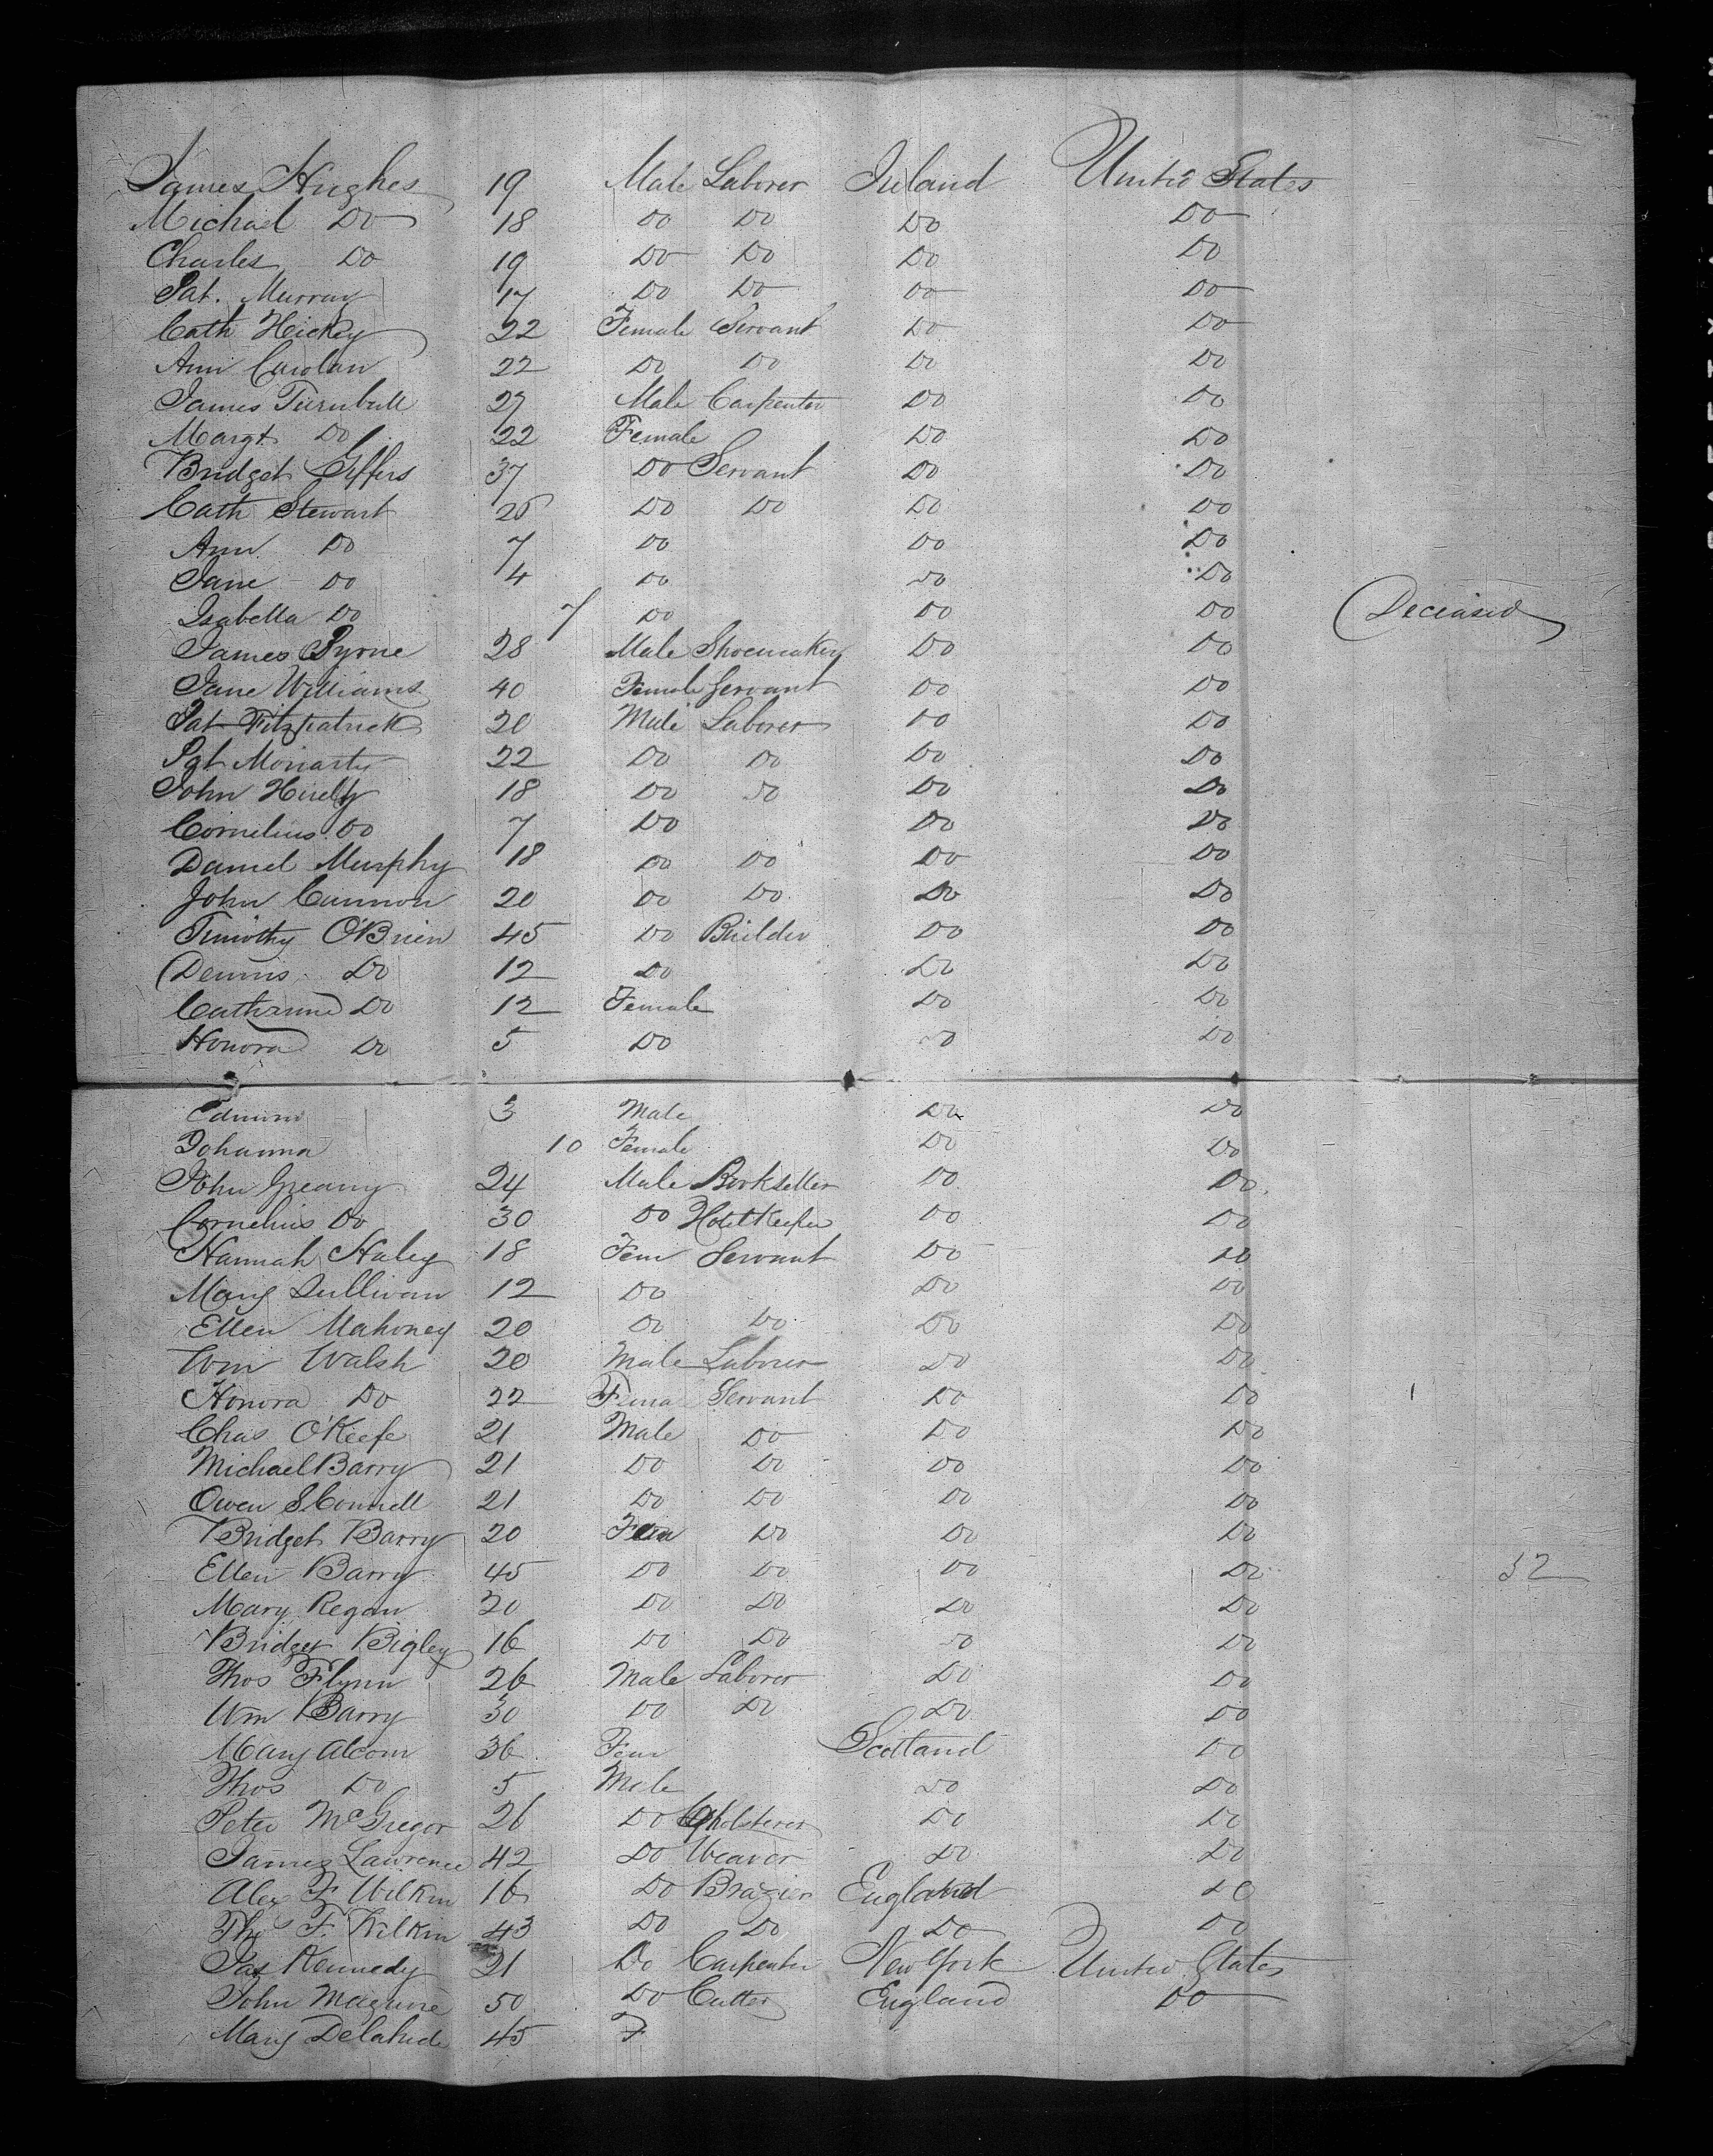 James Hughes 19 Male Laborer Ireland United States
Michael Do 18 Do Do Do Do
Charles Do 19 Do Do Do Do
Pat. Murray 17 Do Do Do Do
Cath Hickey 22 Female Servant Do Do
Ann Carolan 22 Do Do Do Do
James Turnbull 27 Male Carpenter Do Do
Margt Do 22 Female Do Do
Bridget Jeffers 37 Do Servant Do Do
Cath Stewart 26 Do Do Do Do
Ann Do 7 Do Do Do
Jane Do 4 Do Do Do
Isabella Do 7 Do Do Do Deceased
James Byrne 28 Male Shoemaker Do Do
Jane Williams 40 Female Servant Do Do
Pat Fitzpatrick 20 Male Laborer Do Do
Pat Moriarty 22 Do Do Do Do
John 18 Do Do Do Do
Cornelius Do 7 Do Do Do
Daniel Murphy 18 Do Do Do Do
John Cannon 20 Do Do Do Do
Timothy O'Brien 45 Do Builder Do Do
Dennis Do 12 Do Do Do
Catharine Do 12 Female Do Do
Honora Do 5 Do Do Do
Edmund 3 Male Do Do
Johanna 10 Female Do Do
John Greany 24 Male Bookseller Do Do
Cornelius Do 30 Do Hotelkeeper Do Do
Hannah Haley 18 Fem Servant Do Do
Mary Sullivan 12 Do Do Do
Ellen Mahoney 20 Do Do Do Do
Wm Walsh 20 Male Laborer Do Do
Honora Do 22 Fema Servant Do Do
Chas O'Keefe 21 Male Do Do Do
Michael Barry 21 Do Do Do Do
Owen 21 Do Do Do Do
Bridget Barry 20 Fem Do Do Do
Ellen Barry 45 Do Do Do Do 52
Mary Regan 20 Do Do Do Do
Bridget Bigley 16 Do Do Do Do
Thos Flynn 26 Male Laborer Do Do
Wm Barry 30 Do Do Do Do
Mary Alcorn 36 Fem Scotland Do
Thos Do 5 Male Do Do
Peter McGregor 26 Do Upholsterer Do Do
James Lawrence 42 Do Weaver Do Do
Alex F Wilkin 16 Do Brazier England Do
Thos F. Wilkin 43 Do Do Do Do
Jas Kennedy 21 Do Carpenter New York United States
John Maguire 50 Do Cutter England Do
Mary Delahide 45 F